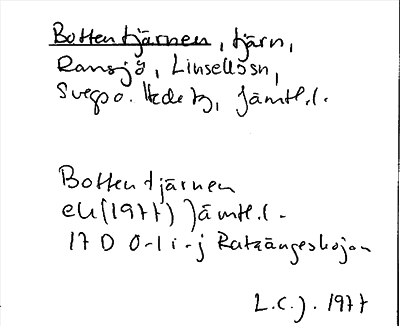 Bottentjärnen, tjärn,
Ransjö, Linsellssn,
Svegs o. Hede tg, Jämtl.l.
Bottentjärnen
ek (1977) Jämtl.l -
17 D 0-1 i-j Rataängeskojan
L.C.J. 1977